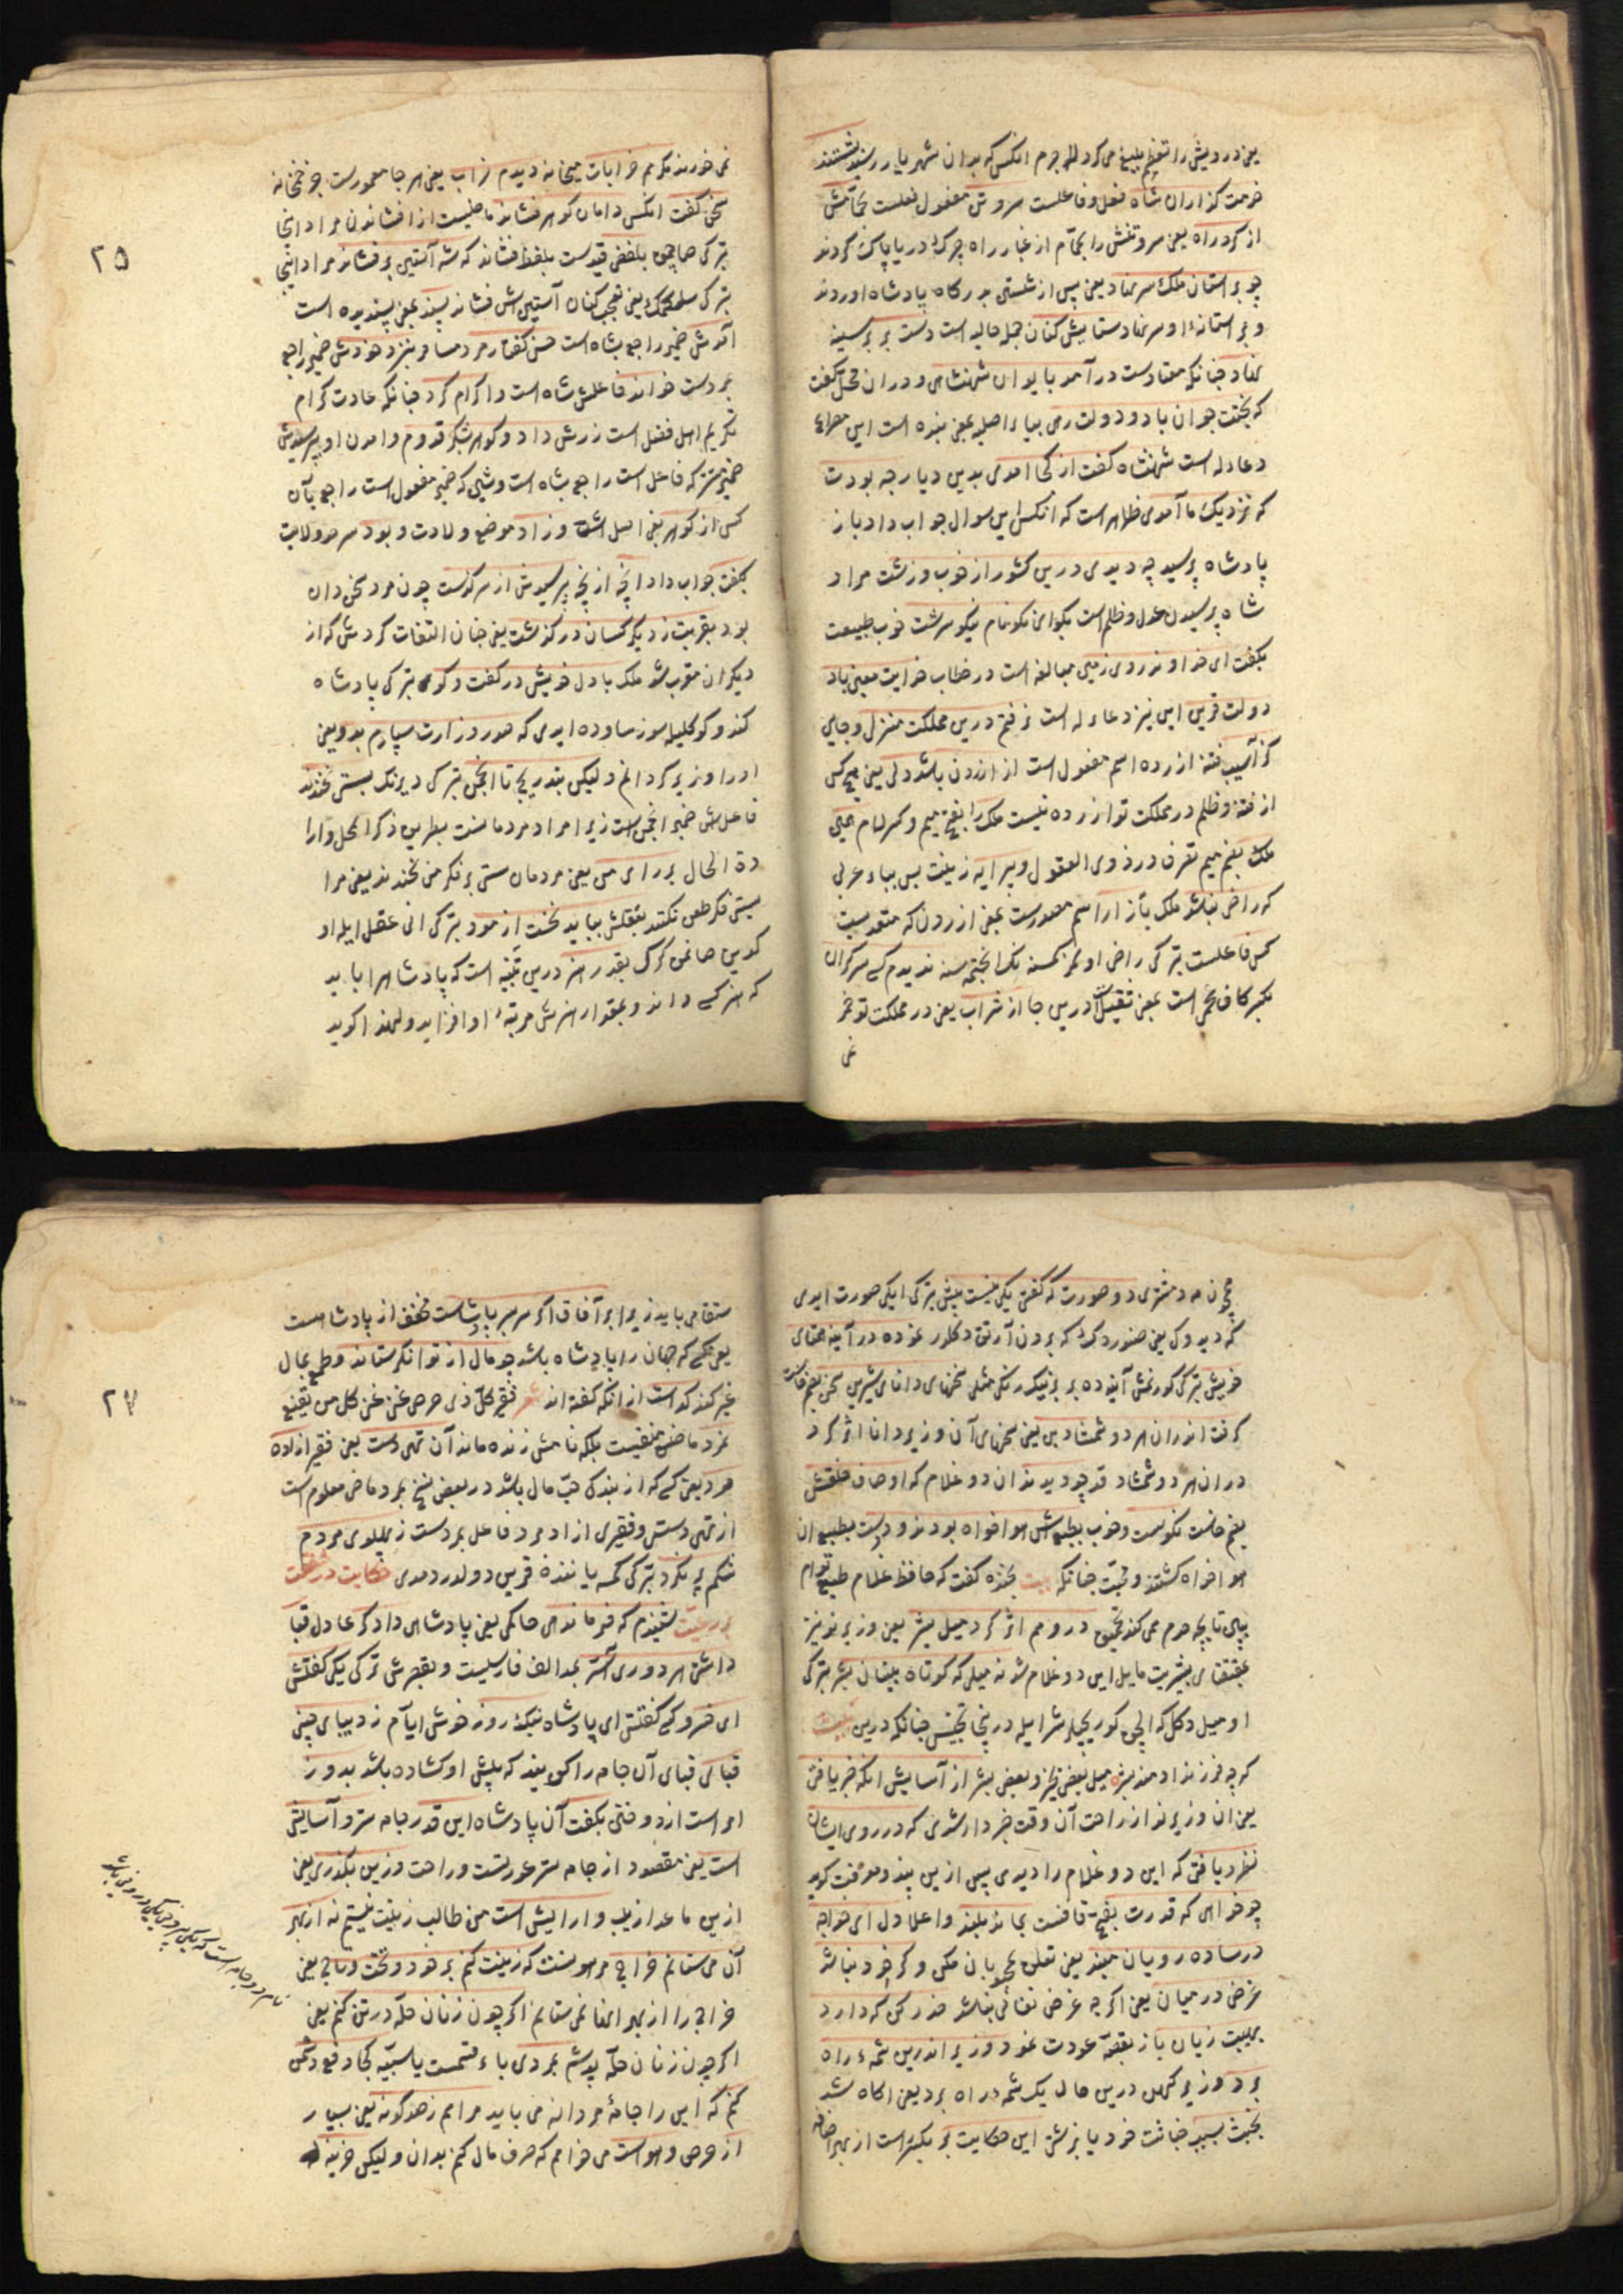 یعنی درویش را تعظیم بلیغ می کرد لاجرم انکس که بدان شهریار رسید بشستند
خدمت کذاران شاه فعل و فاعلست سر و تن مفعول فعلست بحمامش
از کرد راه یعنی سر و تنش را بحمام از غبار راه چرک دریا پاک کردند
چو بر استان ملک سر نهاد یعنی پس از شستن بدرکاه پادشاه اوردند
و بر استانهٔ او سر نهاد ستایش کنان جمله حالیه است دست بر بر سینه
نهاد چنانکه معتادست درآمد بایوان شهنشاهی و دران محل کفت
که بختت جوان باد و دولت رهی بیاء اصلیه بمعنی بنده است این مصراع
دعادله است شهنشاه کفت از کجا امدی بدین دیار چه بودت
که نزدیک ما آمدی ظاهر است که انکس این سوال جواب داد باز
پادشاه پرسید چه دیدی درین کشور از خوب و زشت مراد
شاه پرسیدن عدل و ظلم است بکو ای نکونام نیکو سرشت خوب طبیعت
بکفت ای خداوند روی زمین مبالغه است در خطاب خدایت معین باد
دولت قرین این نیز دعاء له است نرفتم درین مملکت منزل و جای
کز آسیب فتنه ازرده اسم مفعول است از ازردن باشد دلی یعنی هیچ کس
از فتنه و ظلم در مملکت تو ازرده نیست ملک را بفتح میم و کسر لام همین
ملک بضم میم تصرف در ذوی العقول و پیرایه زینت بس بباء عربی
که راضی نباشد ملک بآزار اسم مصدرست بمعنی ازردن که متعدیست
کس فاعلست بترکی راضی اولمز کمسنه نک انجتمه سنه ندیدم کسی سرکران
بکسر کاف عجمی است بمعنی ثقیل درین جا از شراب یعنی در مملکت تو خمر
نمی
نمی خورند مکر هم خرابات میخانه دیدم خراب یعنی هر جا معمورست جز خمخانه
سخن کفت انکس دامان کوهر فشاند ماضیست از افشاندن مراد اینجا
بلفظ فشاند که شه آستین بر فشاند مراد اینجا
بترکی سلکمک یعنی تعجب کنان آستینش فشاند پسند بمعنی پسندیده است
آمدش ضمیر راجع بشاه است حسن کفتار مرد مسافر بنزد خودش ضمیر راجع
بمردست خواند فاعلش شاه است و اکرام کرد چنانکه عادت کرام
تکریم اهل فضل است زرش داد و کوهر بشکر قدوم و امدن او بپرسیدش
ضمیر مستتر که فاعل است راجع بشاه است و شین که ضمیر مفعول است راجع بآن
کس از کوهر یعنی اصل است و زاد موضع ولادت و بود سر مر ولایت
بکفت جواب داد انچه از انچه پرسیدش از سرکذشت چون مرد سخن دان
بود بقربت ز دیکر کسان درکذشت یعنی چنان التفات کردش که از
دیکران مقرب شد ملک با دل خویش در کفت و کوی بترکی پادشاه
کندو کوکلیله سوز سویلر ایدی که صدر وزارت سپارم بدو یعنی
او را وزیر کردانم ولیکن بتدریج تا انجمن بترکی دیرنک بسستی نخندند
فاعلش ضمیر انجمن است زیرا مراد مردمانست بطریق ذکر المحل و ارا
دة الحال بر رای من یعنی مردمان سستی بر فکر من نخندند یعنی مرا
سستی فکر طعن نکنند بعقلش بباید نخست ازمود بترکی انی عقل ایله او
کدین صانمق کرک بقدر هنر درین تنبیه است که پادشاه را باید
که هنر کسی داند و بمقدار هنرش مرتبهٔ او افزاید و لهذا کوید
۲۵
چون مه دختری دو صورت که کفتی یکی نیست بیش بترکی ایکی صورت ایدی
که دیدوک یعنی صنوردک که بردن آرتق دکلدر نموده در آیینه همتای
خویش بترکی کورنمش آینه ده بر برینک رنکی مثلی سخنهای دانای شیرین سخن بضم خاست
کرفت اندران هر دو شمشاد بن یعنی سخنهای آن وزیر دانا اثر کرد
دران هر دو شمشاد قد چو دیدند ان دو غلام که اوصاف خلقش
بضم خاست نکوست و خوب بطبعش هواخواه بودند و دوست بطبع ان
هواخواه کشتند و محبت چنانکه بیت بخنده کفت که حافظ غلام طبع توام
ببین تا بچه حدم همی کند تحمیق درو هم اثر کرد میل بشر یعنی وزیر نو نیز
بمقتضای بشریت مایل این دو غلام شد نه میلی که کوتاه بینان بشر بترکی
او میل دکل که الچق کوریجیلر شر ایله درینجا تجنیس چنانکه درین بیت
که چه فرزند ادمند بشر میل بعضی بخیر و بعضی بشر از آسایش انکه خبر یافتی
یعنی ان وزیر نو از راحت آن وقت خبردار شدی که در روی ایشان
نظر یافتی که این دو غلام را دیدی پس ازین پند و معرفت کوید
چو خواهی که قدرت بفتح قافست بماند بلند و اعلا دل ای خواجه
در ساده رویان مبند یعنی تعلق بمحبوبان مکن و کر خود نباشد
غرض در میان یعنی اکرچه غرض نفسانی نباشد حذر کن که دارد
بهیبت زیان باز بقصه عودت نمود وزیر اندرین شمهٔ راه
برد وزیر کهن درین حال یک شمه راه برد یعنی اکاه شد
بخبث بسبب خباثت خود یا بزشتی این حکایت بر ملک است از بهر
ستقامی باید زیرا بر آفاق اکر سربسر پادشاست مخفف از پادشاهست
یعنی کسی که جهان را پادشاه باشد چو مال از توانکر ستاند و طمع بمال
غیر کند کداست از انکه کفته اند شعر فقیر کل ذی حرص غنی کل من یقنع
نمرد ماضی منفیست بلکه نامش زنده ماند آن تهی دست یعنی فقیر ازاده
مرد یعنی کسی که از بند کی حب مال باشد در بعضی نسخ بمرد ماضی معلوم است
از تهی دستی و فقیری ازاد مرد فاعل بمردست ز پهلوی مردم
شکم پر نکرد بترکی کمسه یاننده قرین دولدرمدی حکایت در شفقت
بر رعیت شنیدم که فرماندهی حاکمی یعنی پادشاهی دادکر عادل قبا
داشتی هر دو روی آستر بمد الف فارسیست و بقصرش ترکی یکی کفتش
ای خسرو کسی کفتش ای پادشاه نیک روز خوش ایام ز دیبای چینی
قبای قبای آن جامه را کویند که پیش او کشاده باشد بدوز
امر است از دوختن بکفت آن پادشاه این قدر جامه ستر و آسایش
است یعنی مقصود از جامه ستر عورتست و راحت وزین بکذری یعنی
ازین ماعدا زیب و ارایش است من طالب زینت نیستم نه از بهر
آن می ستانم خراج مرا هوا نیست که زینت کنم بر خود و تخت و تاج یعنی
خراج را از بهر اینها نمی ستانم اکر چون زنان حله در تن کنم یعنی
اکر چون زنان حله پوشم بمردی باء قسمست یا سببیه کجا دفع دشمن
کنم که این را جامهٔ مردانه می باید مرا هم ز صد کونه یعنی بسیار
از حرص و هواست می خواهم که صرف مال کنم بدان ولیکن خزینه
۲۷